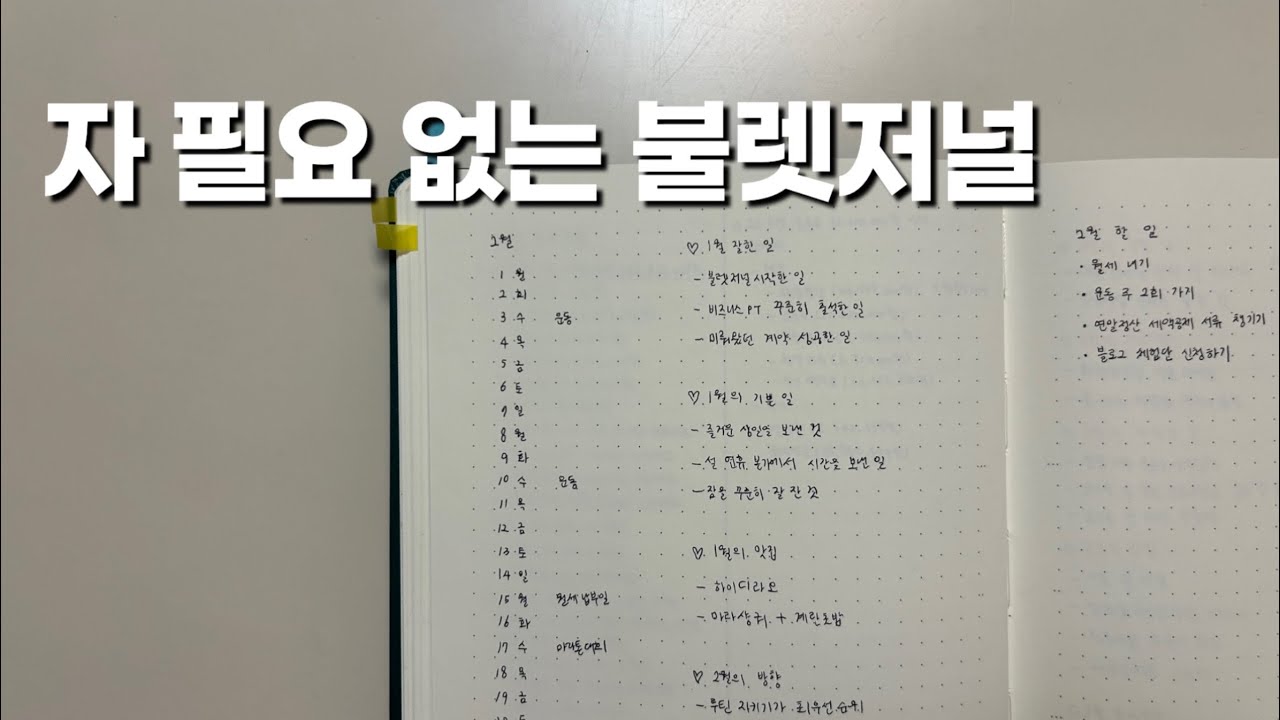 자 필요 없는 불렛저널
2월
1 월
2 화
3 수 운동
4 목
5 금
6 토
7 일
8 월
9 화
10 수 운동
11 목
12 금
13 토
14 일
15 월 월세 납부일
16 화
17 수 마라톤대회
18 목
19 금
♡ 1월 잘한 일
- 불렛저널 시작한 일
- 비즈니스PT 꾸준히 출석한 일
- 미뤄왔던 계약 성공한 일
♡ 1월의 기쁜 일
- 즐거운 생일을 보낸 것
- 설 연휴 본가에서 시간을 보낸 일
- 잠을 꾸준히 잘 잔 것
♡ 1월의 맛집
- 하이디라오
- 마라샹궈 + 계란초밥
♡ 2월의 방향
- 루틴 지키기가 최우선순위
2월 할 일
• 월세 내기
• 운동 주 2회 가기
• 연말정산 세액공제 서류 챙기기
• 블로그 체험단 신청하기